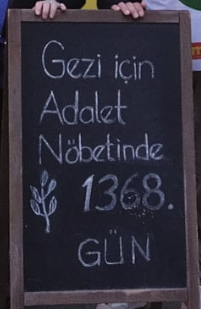 Gezi için
Adalet
Nöbetinde
1368.
GÜN